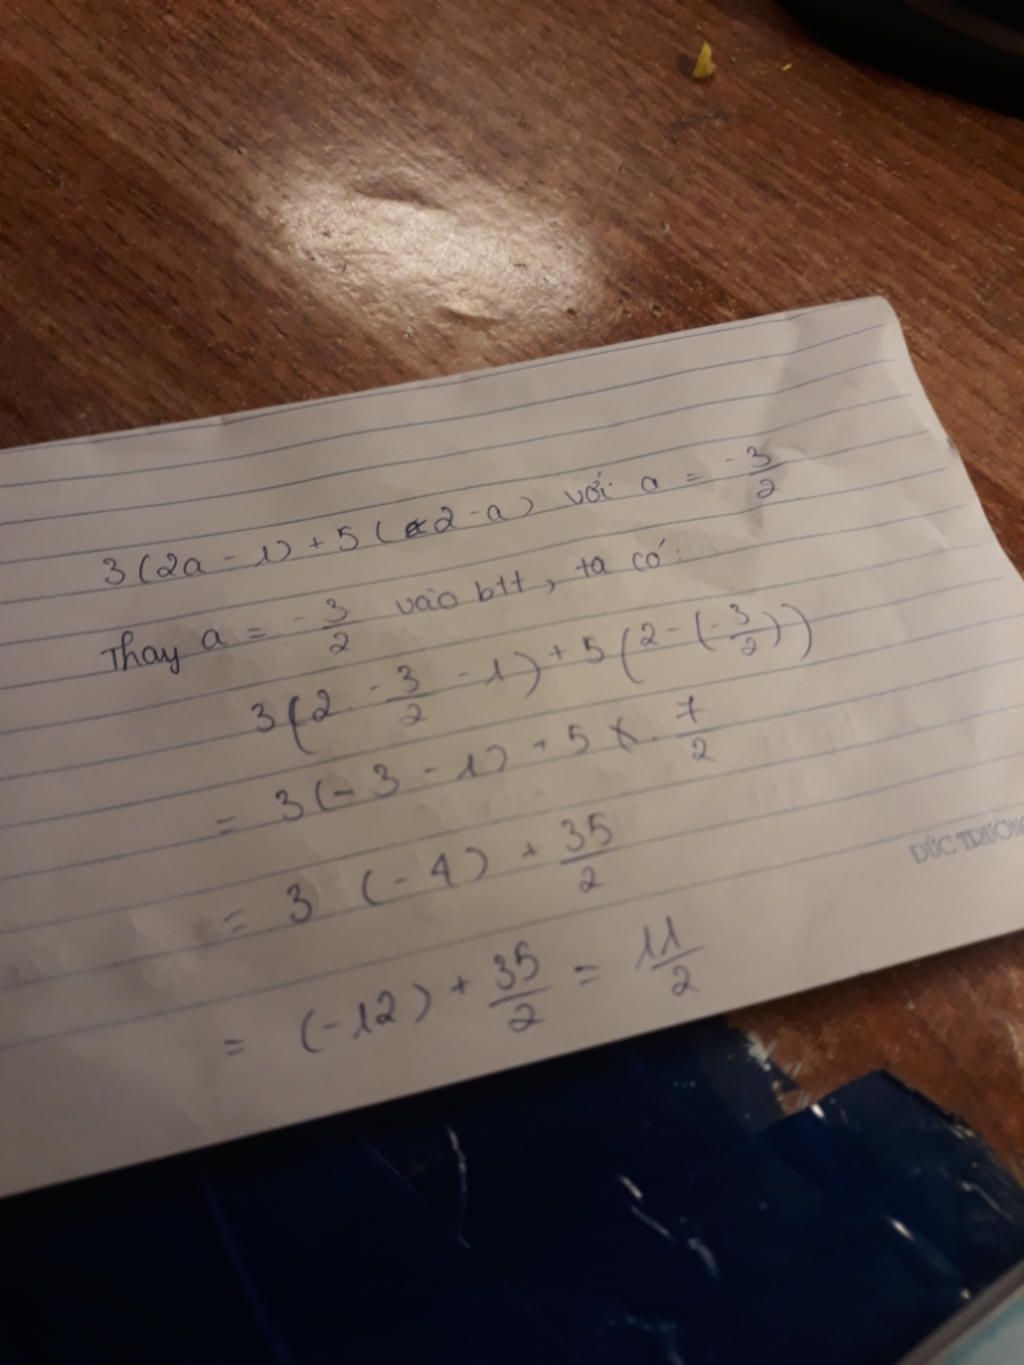 3(2a - 1) + 5(2 - a) với a = -3/2
Thay a = -3/2 vào btt, ta có:
3(2. -3/2 - 1) + 5(2 - (-3/2))
= 3(-3 - 1) + 5 . 7/2
= 3 (-4) + 35/2
= (-12) + 35/2 = 11/2
ĐỨC TRƯỜNG